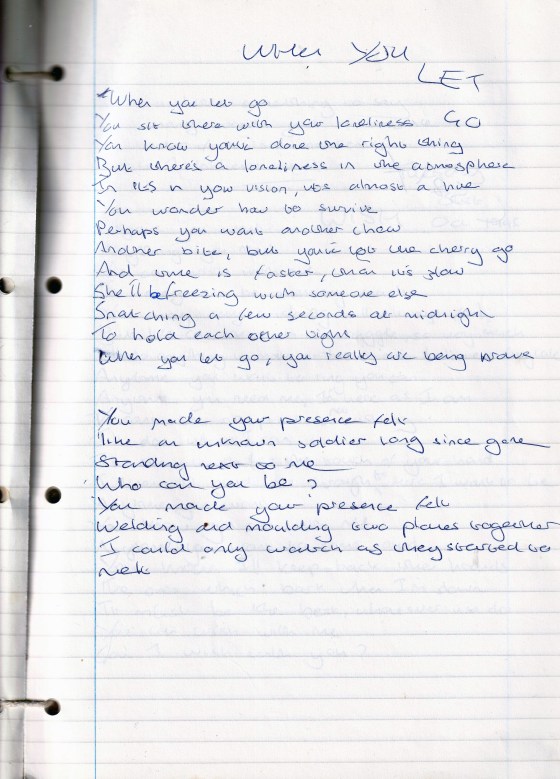 When YOU
LET
GO
"When you let go
You sit there with your loneliness
You know you've done the right thing
But there's a loneliness in the atmosphere
In its n your vision, it's almost a hue
You wonder how to survive
Perhaps you want another chew
Another bite, but you've let the cherry go
And time is faster, than it's slow
She'll be freezing with someone else
Snatching a few seconds at midnight
To hold each other tight
When you let go, you really are being brave
You made your presence felt
like an unknown soldier long since gone
Standing next to me
Who can you be?
You made your presence felt
Welding and moulding two planes together
I could only watch as they started to
melt